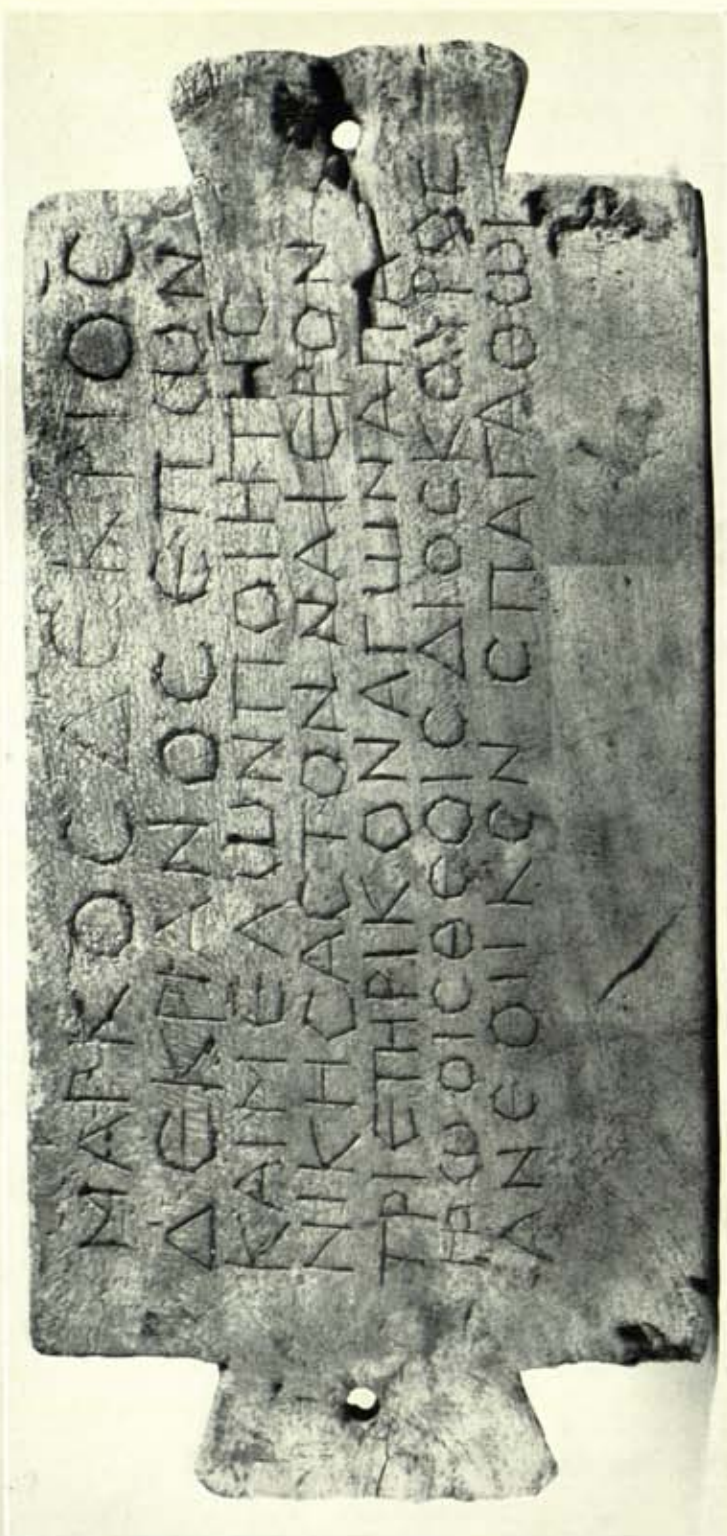 ΜΑΡΚΟϹ ΔΕΚΤΙΟϹ
ΔΕΚΡΙΑΝΟϹ ΕΠΩΝ
ΚΑΙΜΕΛΩΝΠΟΙΗΤΗϹ
ΝΙΚΗϹΑϹΤΟΝΝΑΙΕΡΟΝ
ΤΡΙΕΤΗΡΙΚΟΝΑΓΩΝΑΠΑ
ΤΡΩΟΙϹΘΕΟΙϹΔΙΟϹΚΟΥΡΟΙϹ
ΑΝΕΘΗΚΕΝ ΕΠΑΓΑΘΩΙ